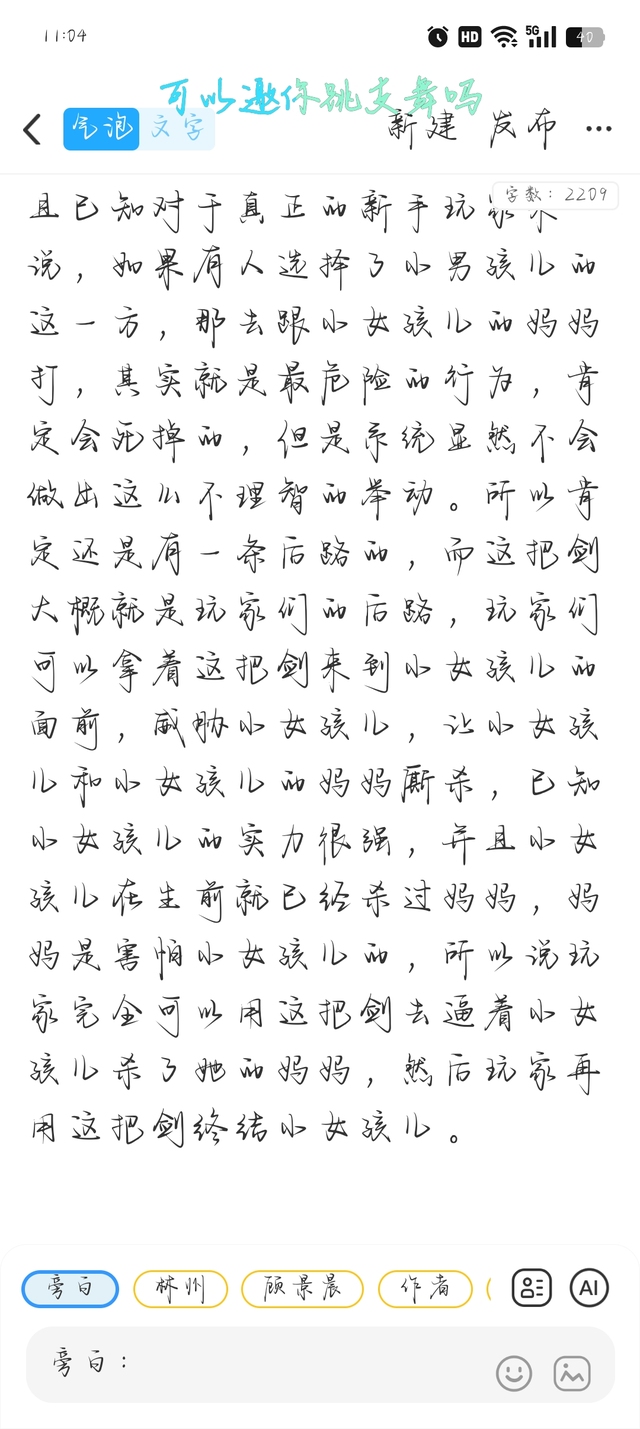 11:04 HD 5G 40
可以邀你跳支舞吗
气泡 文字 新建 发布 ...
字数：2209
且已知对于真正的新手玩家来
说，如果有人选择了小男孩儿的
这一方，那去跟小女孩儿的妈妈
打，其实就是最危险的行为，肯
定会死掉的，但是系统显然不会
做出这么不理智的举动。所以肯
定还是有一条后路的，而这把剑
大概就是玩家们的后路，玩家们
可以拿着这把剑来到小女孩儿的
面前，威胁小女孩儿，让小女孩
儿和小女孩儿的妈妈厮杀，已知
小女孩儿的实力很强，并且小女
孩儿在生前就已经杀过妈妈，妈
妈是害怕小女孩儿的，所以说玩
家完全可以用这把剑去逼着小女
孩儿杀了她的妈妈，然后玩家再
用这把剑终结小女孩儿。
旁白 林州 顾景晨 作者 AI
旁白：